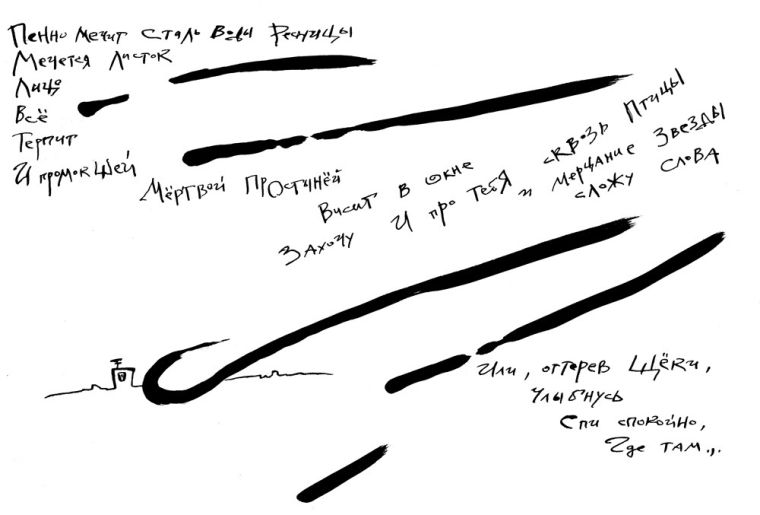 Пенно мечит сталь воды ресницы
Мечется листок
Лицо
Всё
Терпит
И промокшей
Мёртвой простынёй
Висит в окне
Захочу и про тебя сквозь птицы
и мерцание звезды
сложу слова
Или, оттерев щёки,
Улыбнусь
Спи спокойно,
Где там...